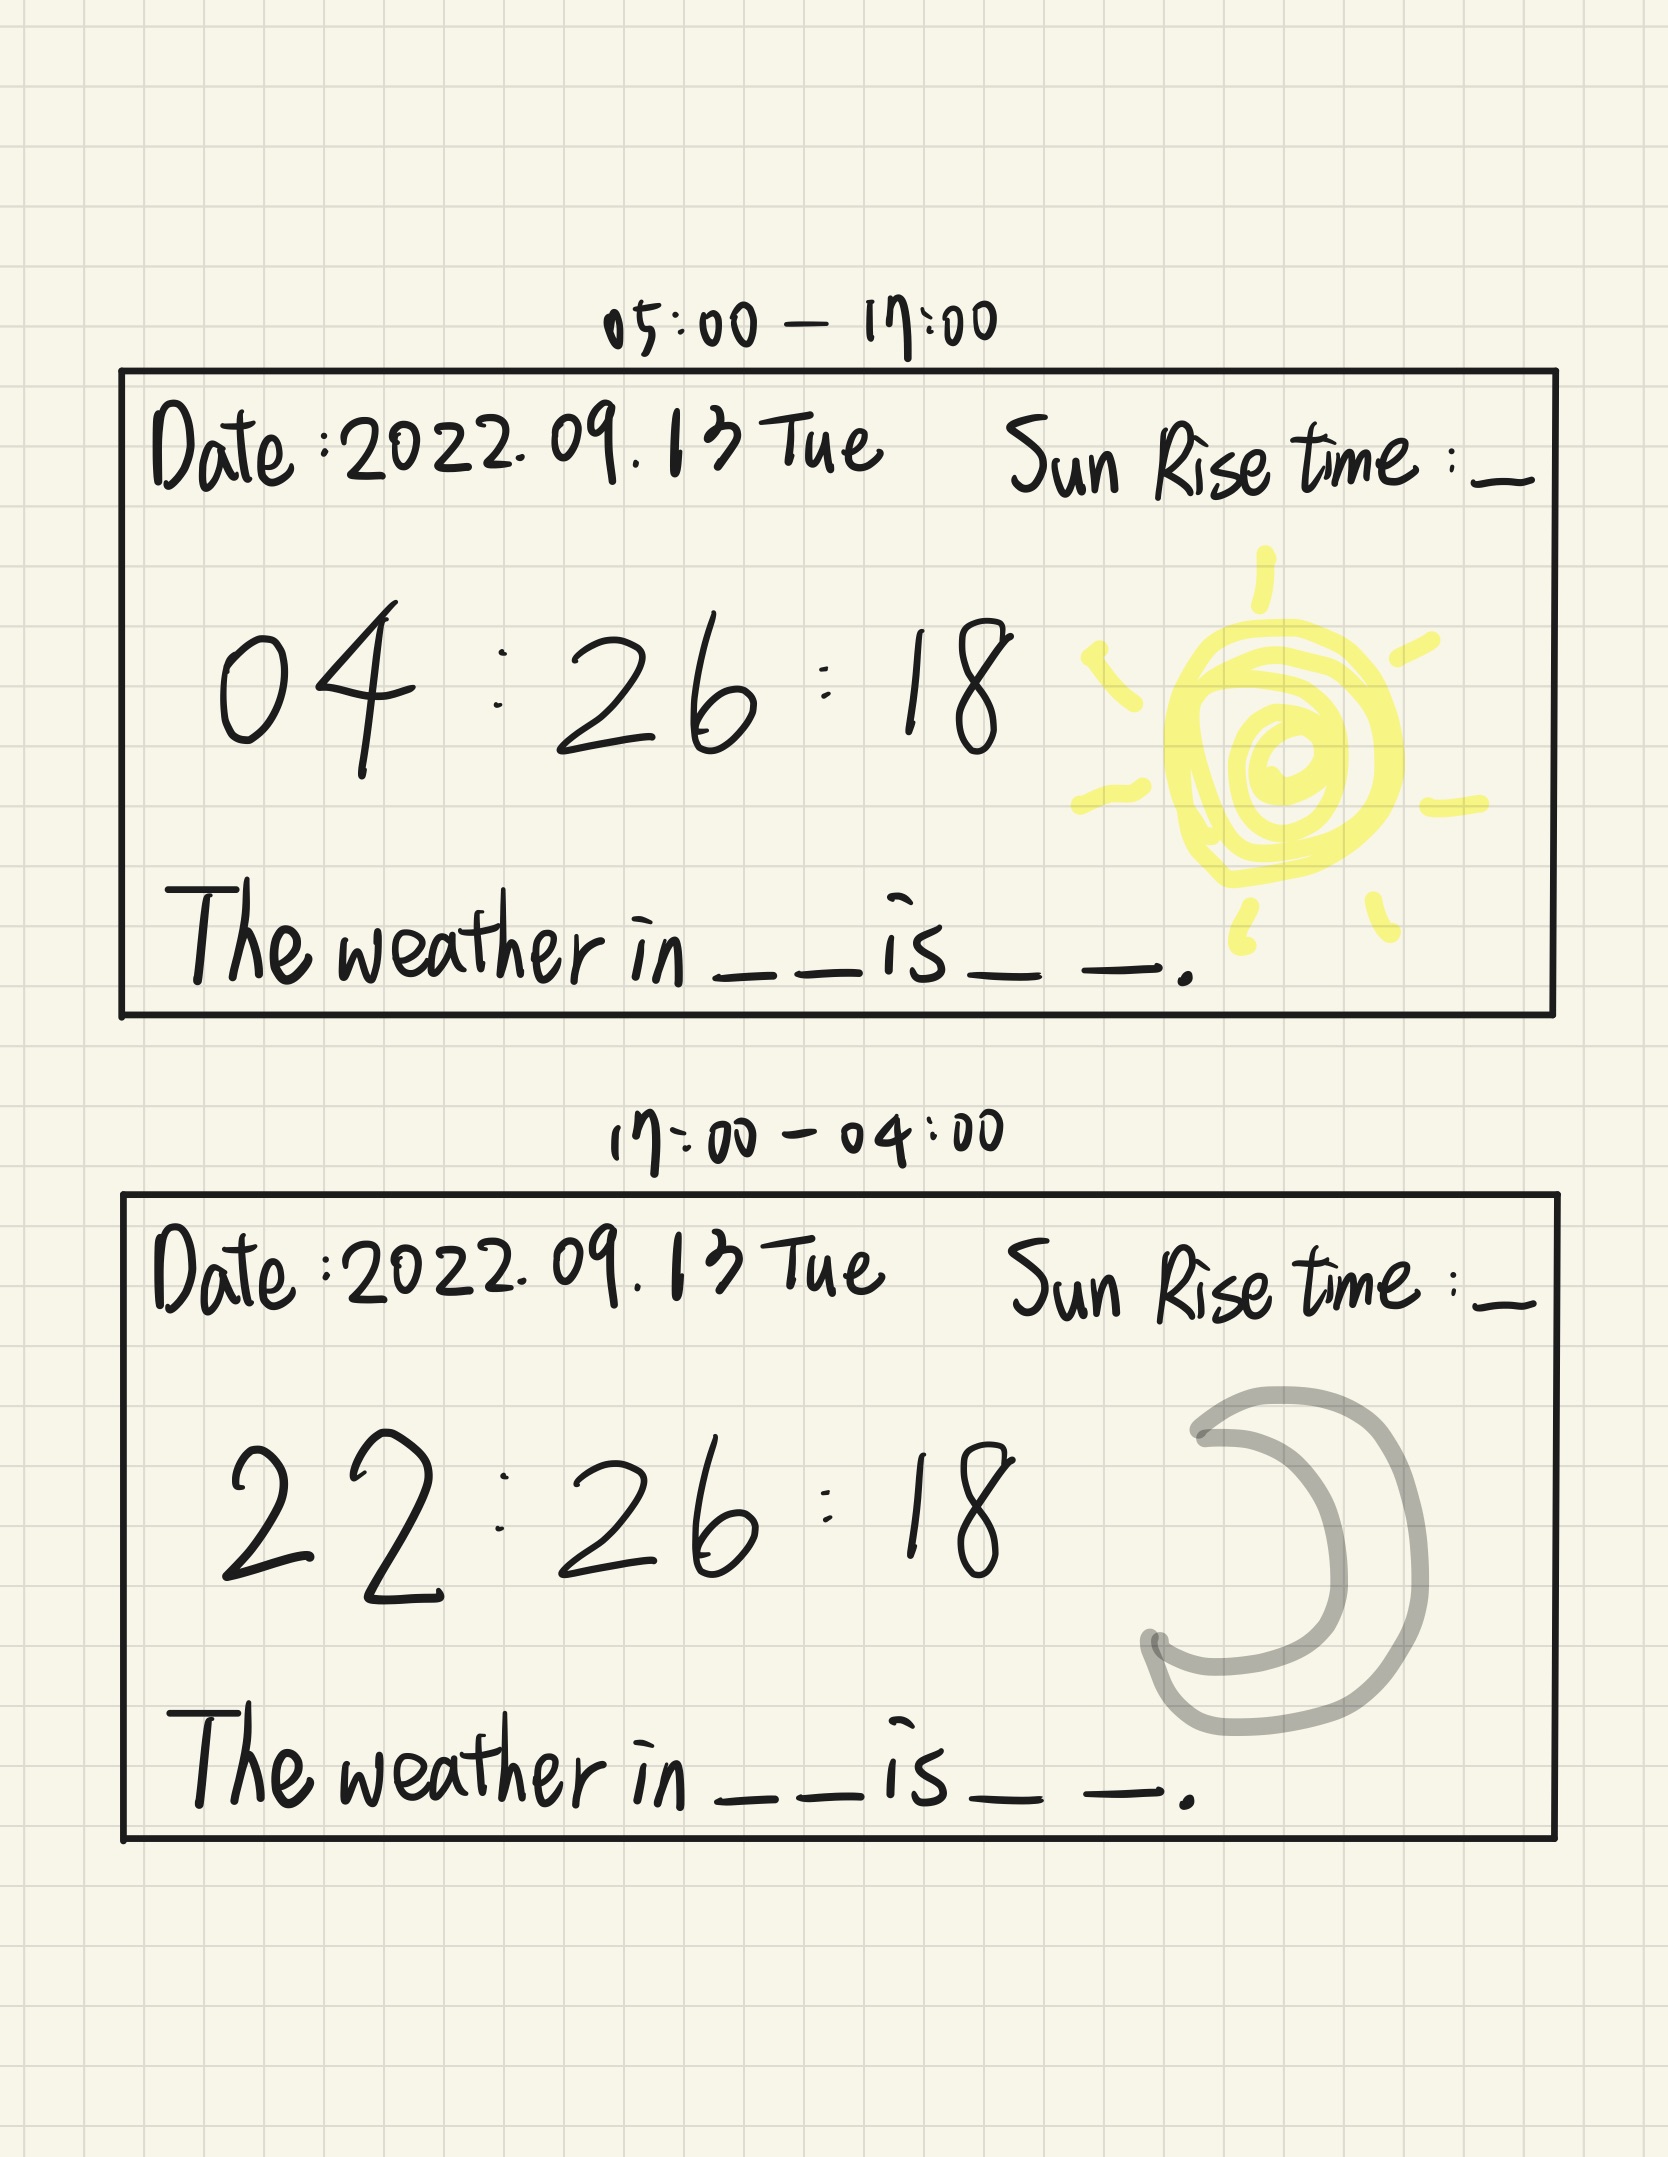 05:00 — 17:00
Date : 2022. 09. 13 Tue Sun Rise time : _
04 : 26 : 18
The weather in _ _ is _ _.
17:00 - 04:00
Date : 2022. 09. 13 Tue Sun Rise time : _
22 : 26 : 18
The weather in _ _ is _ _.